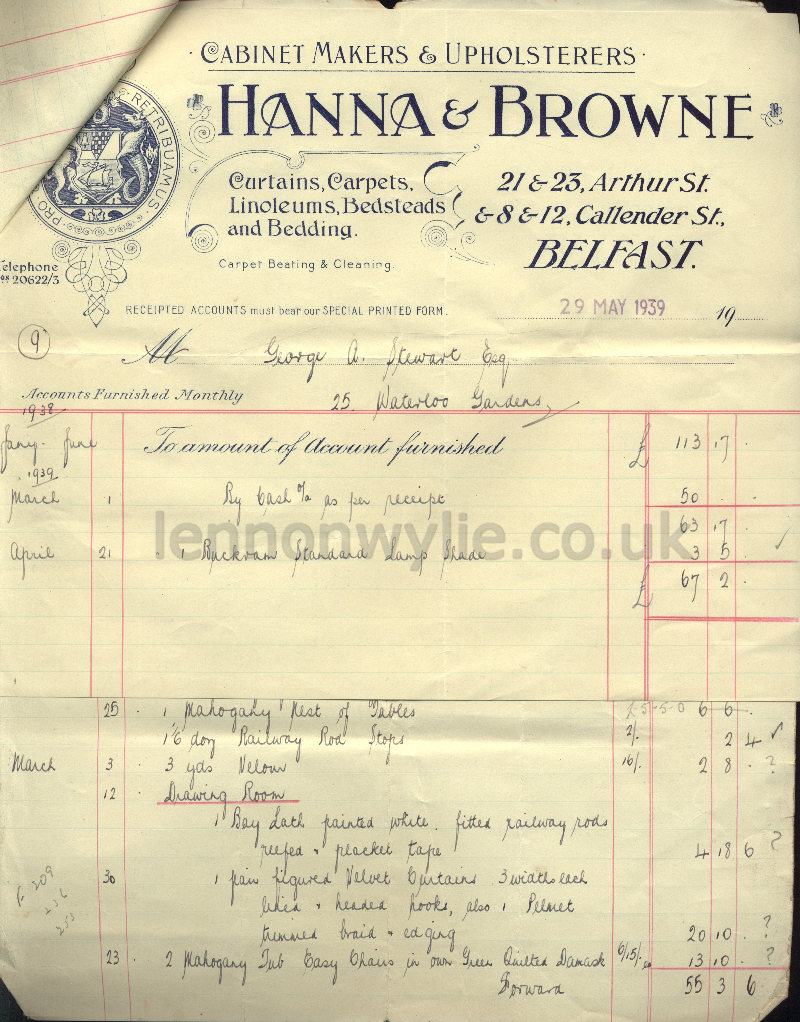 · CABINET MAKERS & UPHOLSTERERS ·
HANNA & BROWNE
PRO RETRIBUAMUS
Curtains, Carpets,
Linoleums, Bedsteads
and Bedding.
Carpet Beating & Cleaning.
21 & 23, Arthur St.
& 8 & 12, Callender St.,
BELFAST.
Telephone
Nos 20622/3
RECEIPTED ACCOUNTS must bear our SPECIAL PRINTED FORM.
29 MAY 1939 19
9
M George A. Stewart Esq.
Accounts Furnished Monthly 25 Waterloo Gardens,
1938
Jany - June To amount of Account furnished £ 113 17 .
1939
March 1 By Cash % as per receipt 50 . .
63 17 .
April 21 . 1 Buckram Standard Lamp Shade 3 5 .
£ 67 2 .
lennonwylie.co.uk
25 . 1 Mahogany Nest of Tables £5-5-0 6 6 .
1 6 doz Railway Rod Stops 2/. 2 4
March 3 . 3 yds Velour 16/. 2 8 . ?
12 . Drawing Room
1 Bay Lath painted white. fitted railway rods
reefed + placket tape 4 18 6 ?
30 1 pair figured Velvet Curtains 3 widths each
lined + headed hooks, also 1 Pelmet
trimmed braid + edging 20 10 . ?
23 . 2 Mahogany Tub Easy Chairs in own Green Quilted Damask 6/15/. ea 13 10 . ?
Forward 55 3 6
209
236
253